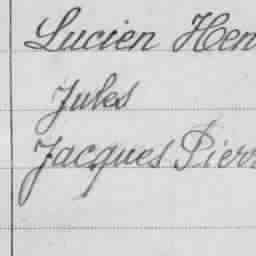 Lucien Hen
Jules
Jacques Pierr